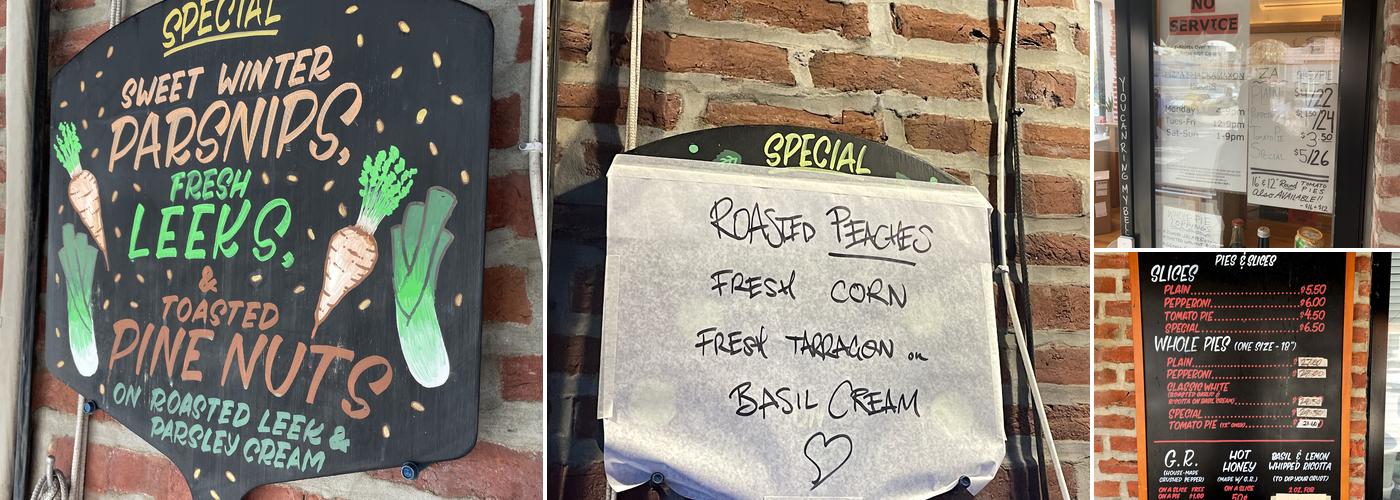 SPECIAL
SWEET WINTER
PARSNIPS,
FRESH
LEEKS,
&
TOASTED
PINE NUTS
ON ROASTED LEEK &
PARSLEY CREAM
SPECIAL
ROASTED PEACHES
FRESH CORN
FRESH TARRAGON on
BASIL CREAM
NO
SERVICE
YOU CAN RING MY BEL
Monday
Tues-Fri 12-9pm
Sat-Sun 1-9pm
ZA
PLAIN
/22
/24
TOMATO PIE $3.50
SPECIAL $5/26
16 & 12" Round TOMATO
PIES
Also AVAILABLE!!
- $16 + $12
PIES & SLICES
SLICES
PLAIN $5.50
PEPPERONI $6.00
TOMATO PIE $4.50
SPECIAL $6.50
WHOLE PIES (ONE SIZE - 18")
PLAIN
PEPPERONI
CLASSIC WHITE
(ROASTED GARLIC &
RICOTTA ON BASIL CREAM)
SPECIAL
TOMATO PIE
G.R. HOT BASIL & LEMON
(HOUSE-MADE HONEY WHIPPED RICOTTA
CRUSHED PEPPER) (MADE W/ G.R.) (TO DIP YOUR CRUST)
ON A SLICE FREE ON A SLICE 2 OZ. FOR
ON A PIE $1.00 50¢